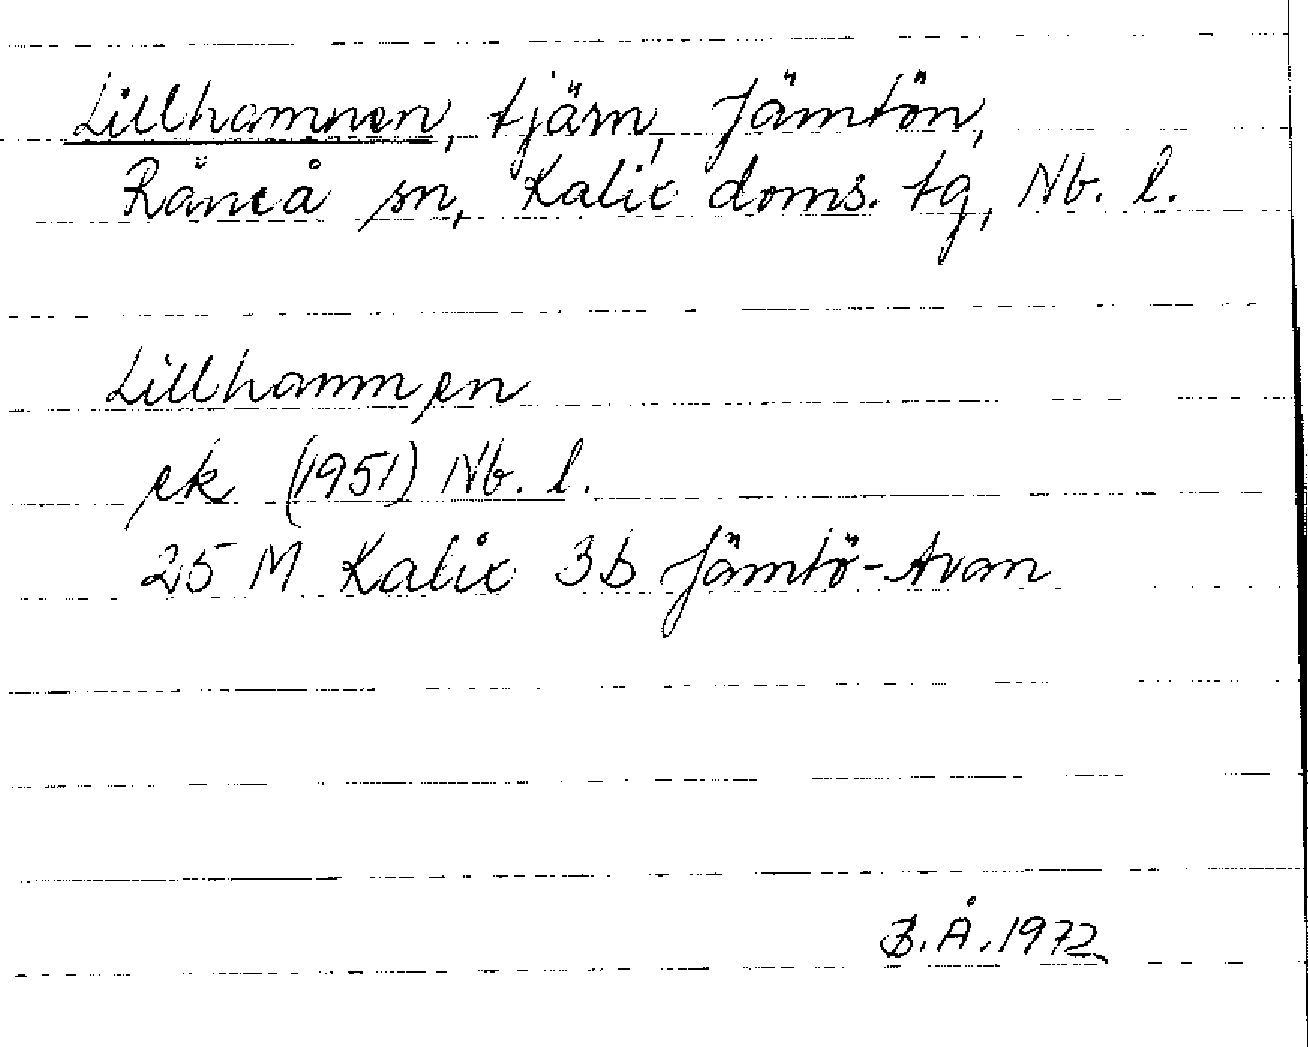 Lillhamnen, tjärn, Jämtön,
Råneå sn, Kalix doms. tg, Nb. l.
Lillhamnen
ek (1951) Nb. l.
25 M Kalix 3b Jämtö-Avan
B.Å. 1972